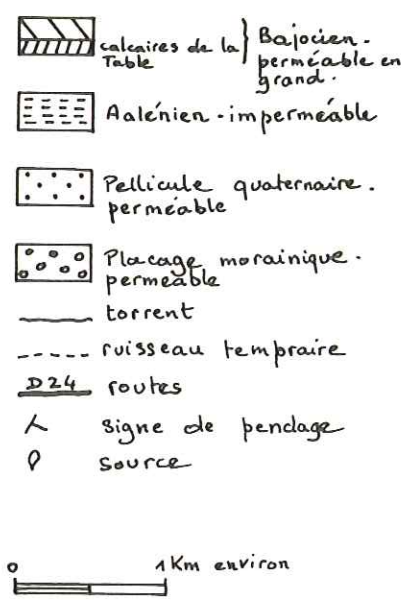 calcaires de la Table
Bajocien.
perméable en
grand.
Aalénien - imperméable
Pellicule quaternaire.
perméable
Placage morainique.
permeable
torrent
ruisseau tempraire
D24 routes
signe de pendage
source
0 1 Km environ